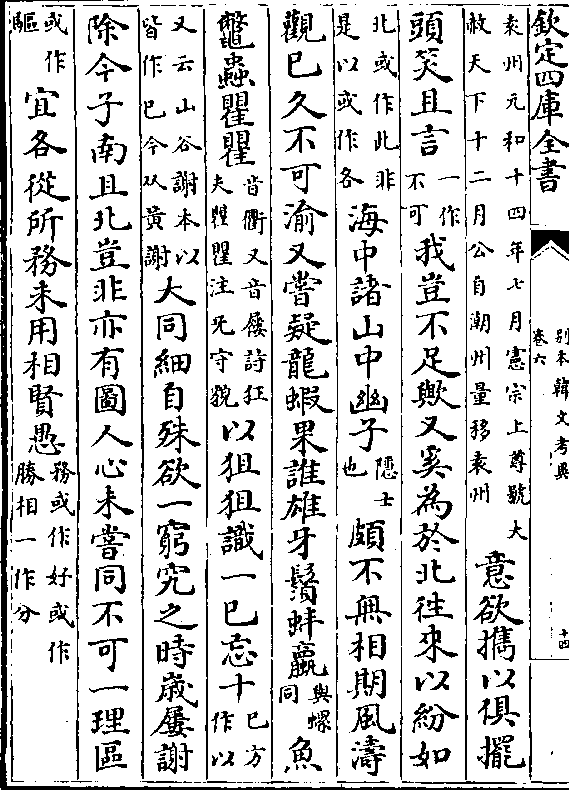 欽定四庫全書
別本韓文考異
卷六
十四
袁州元和十四年七月憲宗上尊號大
赦天下十二月公自潮州量移袁州
意欲攜以俱擺
頭笑且言
一作
不可
我豈不足歟又奚為於北往來以紛如
北或作此非
是以或作各
海中諸山中幽子
隱士
也
頗不無相期風濤
觀已久不可渝又嘗疑龍蝦果誰雄牙鬚蚌蠃
與螺
同
魚
鼈蟲瞿瞿
音衢又音屨詩狂
夫瞿瞿注旡守貌
以狙狙識一已忘十
已方
作以
又云山谷謝本以
皆作已今从黃謝
大同細自殊欲一窮究之時歲屢謝
除今子南且北豈非亦有圖人心未嘗同不可一理區
或作
驅
宜各從所務未用相賢愚
務或作好或作
勝相一作分